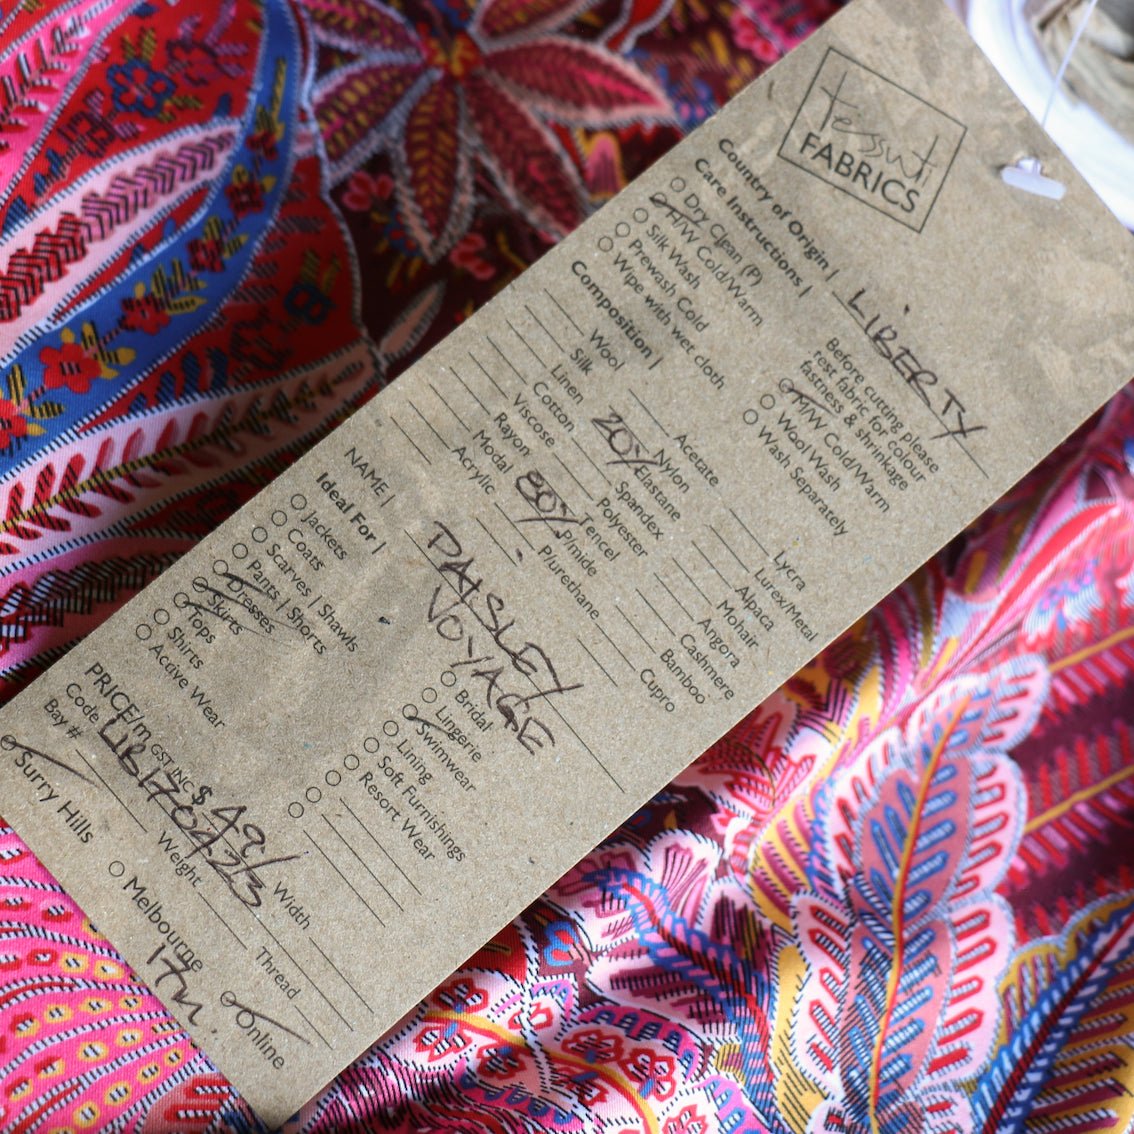 tessuti
FABRICS
Country of Origin | LIBERTY
Care Instructions |
Dry Clean (P)
H/W Cold/Warm
Silk Wash
Prewash Cold
Wipe with wet cloth
Before cutting please
test fabric for colour
fastness & shrinkage
M/W Cold/Warm
Wool Wash
Wash Separately
Composition |
Wool
Silk
Linen
Cotton
Viscose
Rayon
Modal
Acrylic
Acetate
Nylon
20% Elastane
Spandex
Polyester
80% Tencel
P/mide
P/urethane
Lycra
Lurex/Metal
Alpaca
Mohair
Angora
Cashmere
Bamboo
Cupro
NAME | PAISLEY
VOYAGE
Ideal For |
Jackets
Coats
Scarves | Shawls
Pants | Shorts
Dresses
Skirts
Tops
Shirts
Active Wear
Bridal
Lingerie
Swimwear
Lining
Soft Furnishings
Resort Wear
PRICE/m GST INC $ 49/
Code LIB1704223
Bay #
Weight
Width
Thread
Surry Hills
Melbourne
Online
17m.